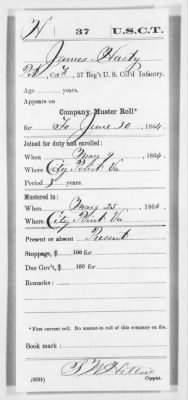 H 37 U.S.C.T.
James Hasty
Pvt, Co. K, 37 Reg't U. S. Col'd Infantry.
Age years.
Appears on
Company Muster Roll*
for To June 30, 1864.
Joined for duty and enrolled:
When May 9, 1864.
Where City Point Va
Period 3 years.
Mustered in:
When May 23, 1864.
Where City Point Va
Present or absent Present
Stoppage, $ 100 for
Due Gov't, $ 100 for
Remarks:
* First current roll. No muster-in roll of this company on file.
Book mark:
(355) Copyist.